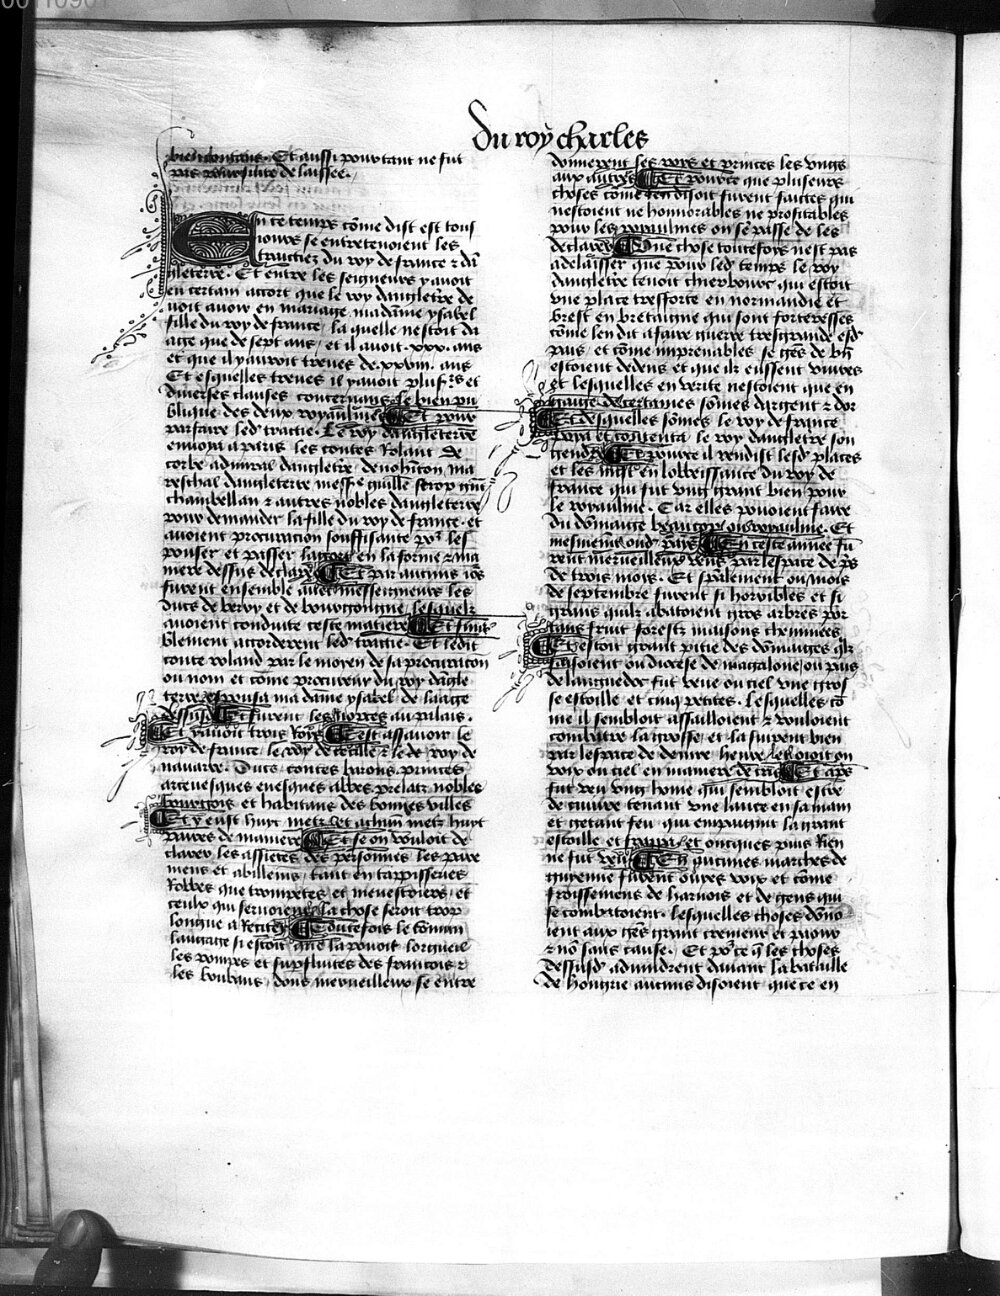 Du roy charles
bien longtemps. Et aussi pourtant ne fut
pas poursuite delaissee.
En ce temps cõme dist est tous
iours se entretenoient les
traictiez du roy de france ⁊ dã
gleterre. Et entre les seigneurs y auoit
en certain accort que le roy dangletẽre de
uoit auoir en mariage madãme ysabel
fille du roy de france / la quelle nestoit da
aige que de sept ans / et il auoit .xxx. ans
et que il y auroit treues de .xxviii. ans
Et esquelles treues il y auoit plusrs et
diuerses clauses contenans le bien pu
blique des deux royaulmes Et pour
parfaire led traictie. Le roy dangleterre
enuoya a paris les contes Rolant de
corbe admiral dangletẽre de nohinton ma
reschal dangleterre messre guillẽ scrop grãt
chambellan ⁊ autres nobles dangleterre
pour demander la fille du roy de france et
auoient procuration souffisante por les
pouser et passer laccort en la forme ⁊ ma
niere dessus declaree Et par aucuns iõs
furent ensemble auec messeigneurs les
ducs de berry et de bourgongne lesquelz
auoient conduite ceste matiere Et final
blement accorderent led traictie. Et ledit
conte roland par le moyen de sa procuration
ou nom et cõme procureur du roy dãgle
terre espousa ma dame ysabel de laaige
dessusd Et furent les nopces au palais.
Et y auoit trois Roys Cest assauoir le
roy de france / le roy de cecille ⁊ le de roy de
nauarre. Ducs contes barons princes
arceuesques euesques abbes prelatz nobles
bourgois et habitans des bonnes villes
Et y eust huyt metz et a chũn metz huyt
paires de maniere Et se on vouloit de
clairer les assietes des personnes les pare
mens et abillemẽs / tant en tappisseries
Robbes que trompetes et menestriers et
ceulx qui seruoient la chose seroit trop
longue a Reciter Toutesfois le cõmun
lauguage si estoit que la pouoit lorgueil
les pompes et supfluites des francois ⁊
les boubans / dons merueilleux se entre
donnerent les roys et princes les vngs
aux autres Et pource que plusieurs
choses cõme len disoit furent faictes qui
nestoient ne honnorables ne proffitables
pour les royaulmes on se passe de les
declairer Une chose toutesfoys nest pas
a delaisser que pour led temps le roy
dangletẽre tenoit chierbourc qui estoit
vne place tresforte en normandie et
brest en bretaigne qui sont forteresses
cõme len dit a faire guerre tresgrande esd
pais / et cõme imprenables se gẽs de bñ
estoient dedens et que ilz eussent viures
et lesquelles en verite nestoient que en
gaige de certaines sõmes dargent ⁊ dor
Et desquelles sõmes le roy de france
paya et contenta le roy dangletẽre son
gendre Et pource il rendist lesd places
et les mist en lobeissance du roy de
france qui fut vng grant bien pour
le royaulme. Car elles pouoient faire
du dõmaige beaucop ou royaulme. Et
mesmemẽt oud pays En ceste annee fu
rent merueilleux vens par lespace de pẽs
de trois mois. Et spãlement ou mois
de septembre furent si horribles et si
grans quilz abatoient gros arbres por
tans fruit forestz maisons cheminees
Cestoit grant pitie des dõmaiges qlz
faisoient ou diocese de magalone / ou pais
de languedoc fut veue ou ciel vne gros
se estoille et cinq petites. Lesquelles cõ
me il sembloit assailloient ⁊ vouloient
combatre la grosse / et la suirent bien
par lespace de demie heure / les oioit on
voix ou ciel en maniere de cris Et aps
fut veu vng home qui sembloit estre
de cuiure tenant vne lance en sa main
et gectant feu / qui empaigni la grant
estoille et frappa / et oncques puis Rien
ne fut veu En aucunes marches de
guyenne furent ouyes voix et cõme
froissemens de harnois et de gens qui
se combatoient. Lesquelles choses dõno
ient aux gẽs grant cremeur et paour
⁊ nõ sans cause. Et pource q̃ les choses
dessusd aduindrent dauant la bataille
de hongrie aucuns disoient que ce en